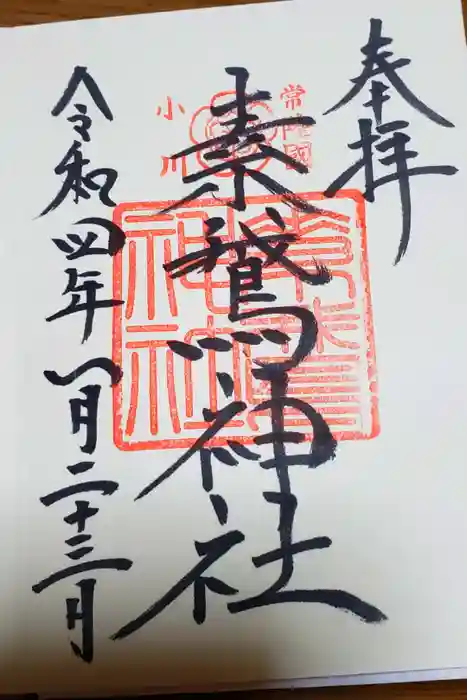 奉拝
常陸國
小川
素鵞神社
令和四年一月二十三日